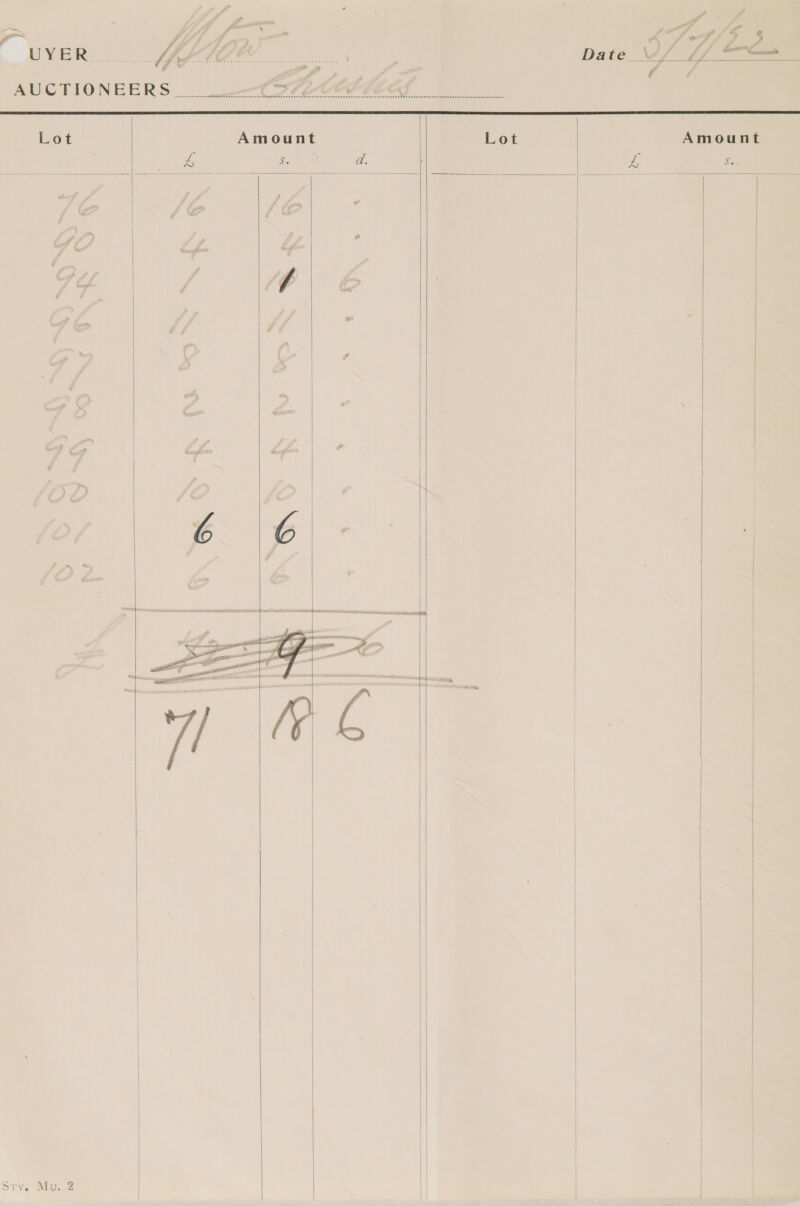 UYER
Date 5/7/22
AUCTIONEERS Christies
Lot Amount Lot Amount
£ s. d. £ s.
76 16 16 -
90 4 4 -
94 1 1 6
96 11 11 -
97 8 8 -
98 2 2 -
99 4 4 -
100 10 10 -
101 6 6 -
102 6 6 -
9
71 18 6
Sty. Mu. 2